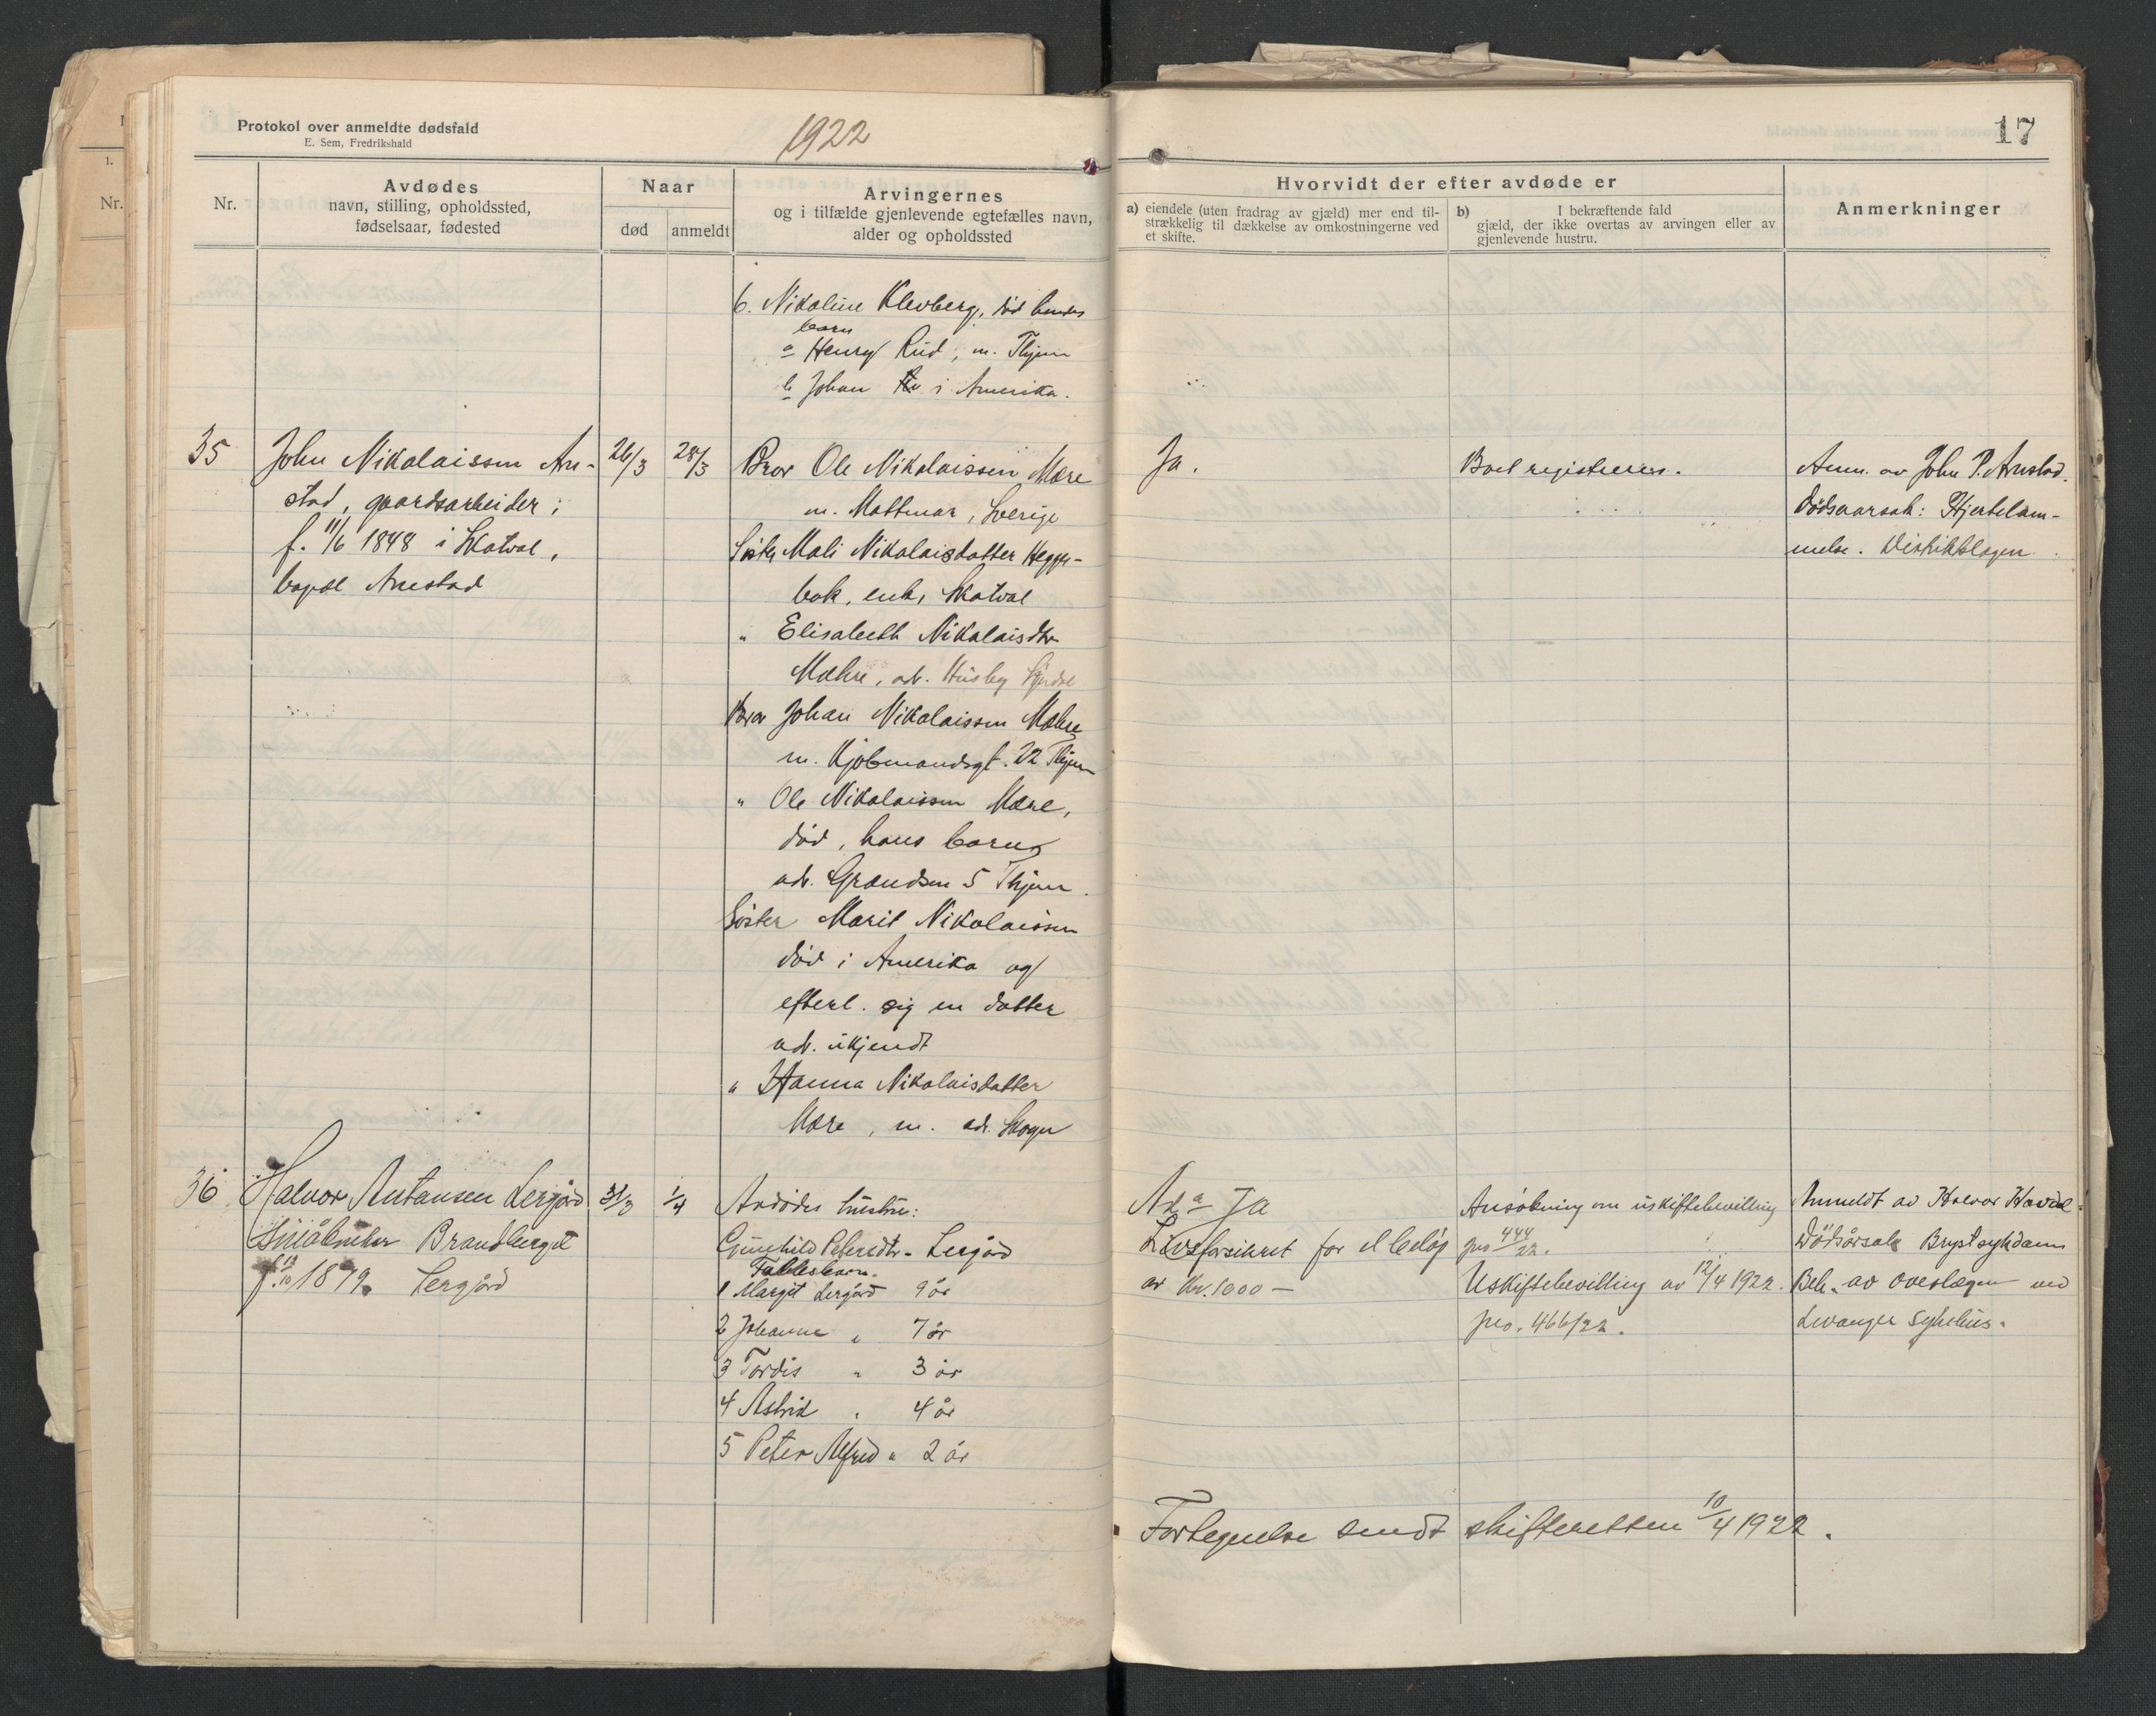 Protokol over anmeldte dødsfald
E. Sem, Fredrikshald
1922
17
Nr.
Avdødes
navn, stilling, opholdssted,
fødselsaar, fødested
Naar
død
anmeldt
Arvingernes
og i tilfælde gjenlevende egtefælles navn,
alder og opholdssted
Hvorvidt der efter avdøde er
a) eiendele (uten fradrag av gjæld) mer end til-
strækkelig til dækkelse av omkostningerne ved
et skifte.
b) I bekræftende fald
gjæld, der ikke overtas av arvingen eller av
gjenlevende hustru.
Anmerkninger
6. Nikoline Klevberg, död hendes
barn
a Henry Rud, m. Thjem
b Johan i Amerika.
35
John Nikolaissen Arn-
stad, gaardsarbeider;
f. 11/6 1848 i Skatval,
bopæl Arnstad
26/3
28/3
Bror Ole Nikolaissen Mære
m. Mattmar, Sverige
Söster Mali Nikolaisdatter Hegge-
bak, enke, Skatval
" Elisabeth Nikolaisdtr
Mæhre, adr. Husby
Bror Johan Nikolaissen Mæhre
m. Kjöbmandsgt. 22 Thjem
" Ole Nikolaissen Mære,
död, hans barn
adr. Grandsen 5 Thjem.
Söster Marit Nikolaissen
död i Amerika og
efterl. sig en datter
adr. ukjendt
" Hanna Nikolaisdatter
Mære, m. adr. Skogn
Ja.
Boet registreres.
Anm. av John P. Arnstad.
Dödsaarsak: Hjertelam-
melse. Distriktslægen.
36
Halvor Antonsen Lergård
Småbruker Brandberget
f. 1879. Lergård
31/3
1/4
Avdödes hustru:
Gunhild Petersdtr. Lergård
Fællesbarn.
1 Margit Lergård 9 år
2 Johanne " 7 år
3 Tordis " 3 år
4 Astrid " 4 år
5 Peter Alfred " 2 år
Ad a Ja
Livsforsikret for et belöp
av Kr. 1000 —
Ansökning om uskiftebevilling
jno 444/22.
Uskiftebevilling av 12/4 1922.
jno. 466/22.
Anmeldt av Halvor
Dödsårsak Brystsykdom
Bek. av overlægen ved
Levanger sykehus.
Fortegnelse sendt skifteretten 10/4 1922.